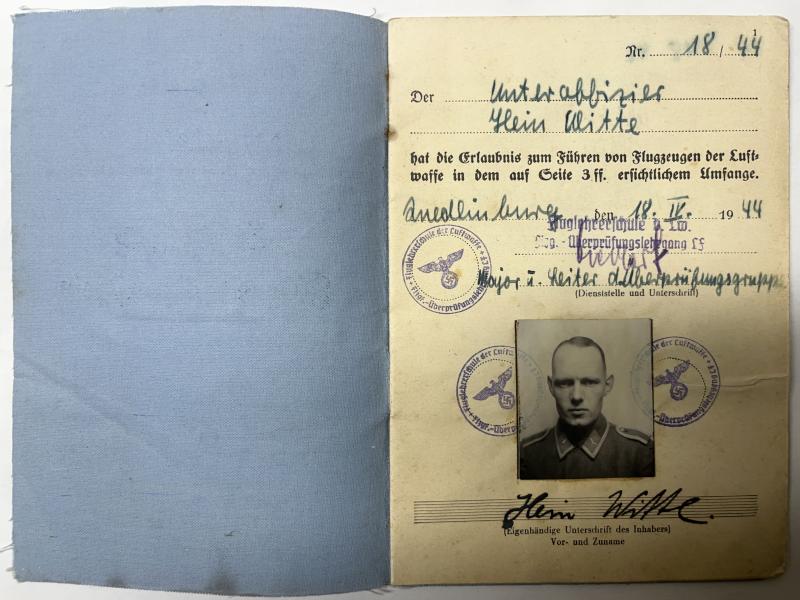 1
Nr. 18 / 44
Der Unteroffizier
Hein Witte
hat die Erlaubnis zum Führen von Flugzeugen der Luft-
waffe in dem auf Seite 3 ff. ersichtlichem Umfange.
Quedlinburg, den 18. IV. 1944
Fluglehrerschule d. Lw.
Flzg.-Überprüfungslehrgang LF
Major u. Leiter d. Überprüfungsgruppe
(Dienststelle und Unterschrift)
Fluglehrerschule der Luftwaffe
Fluglehrerschule der Luftwaffe
der Luftwaffe
Hein Witte.
(Eigenhändige Unterschrift des Inhabers)
Vor- und Zuname